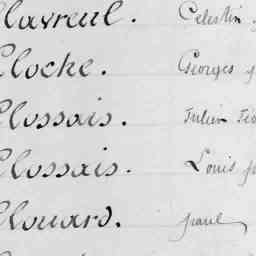 Clavreul. Célestin
Cloche. Georges
Clossais. Julien
Clossais. Louis
Clouard. paul